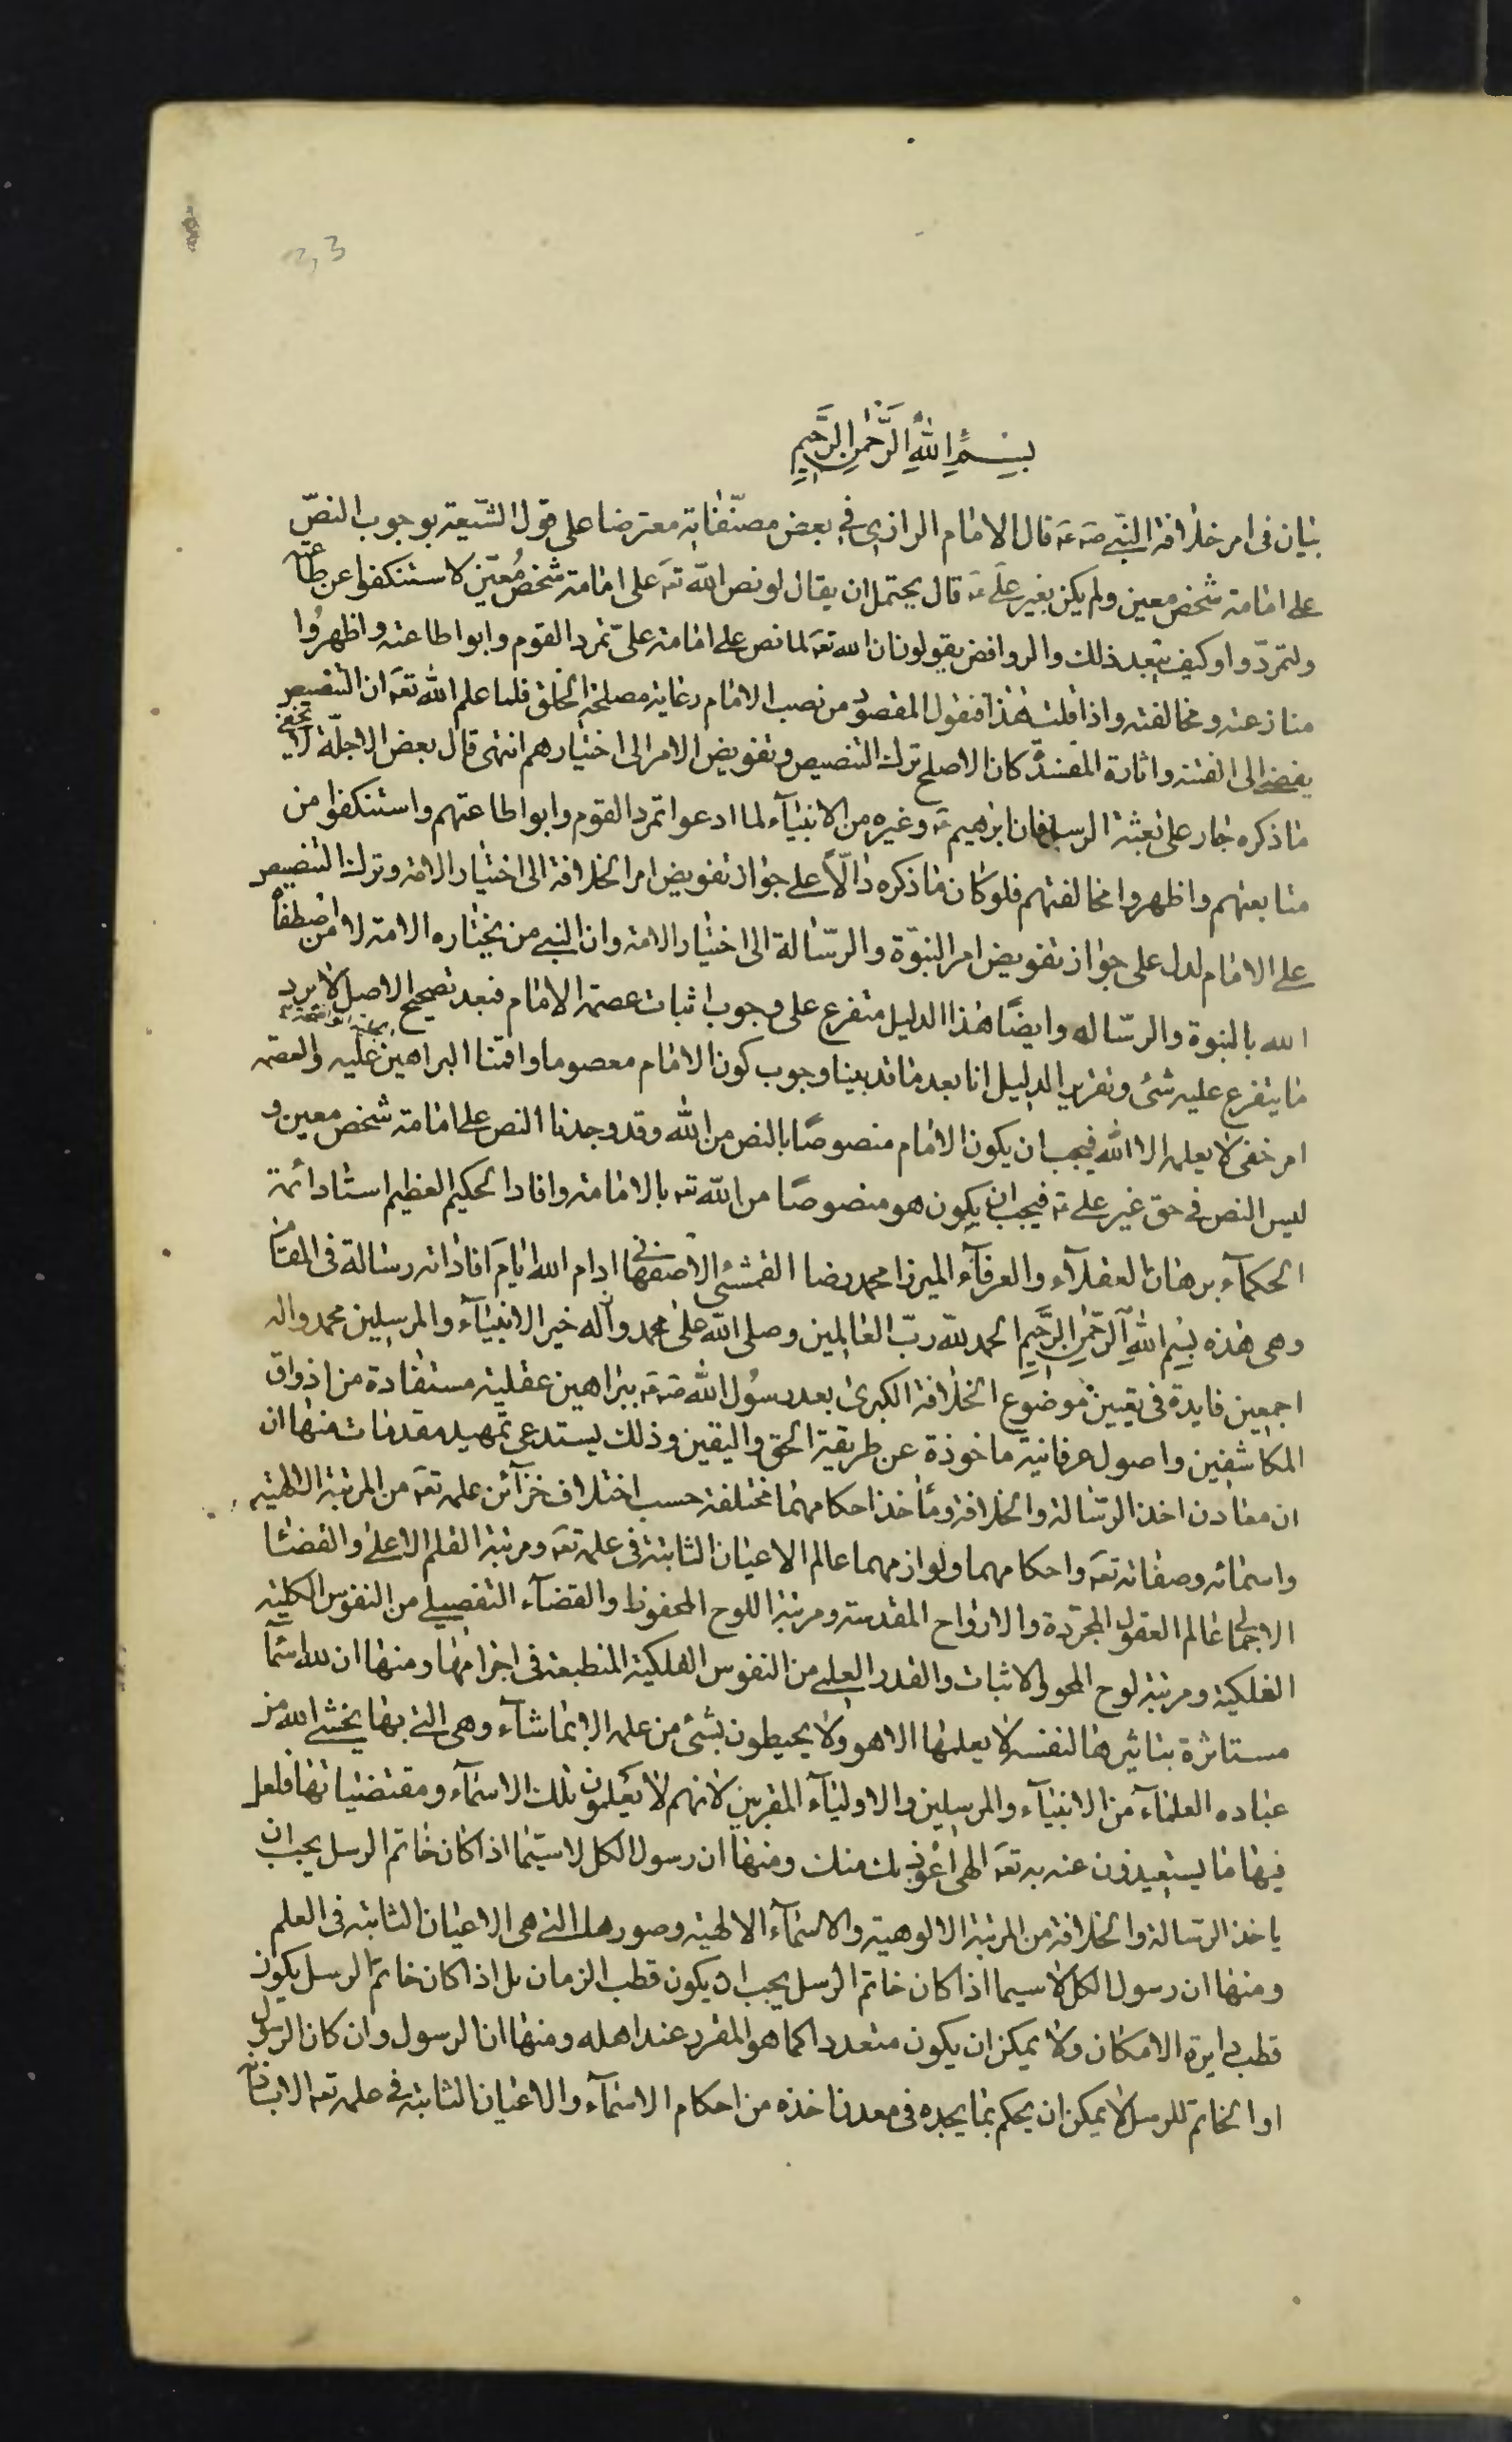 3,3
بِسْمِ اللهِ الرَّحْمٰنِ الرَّحِيمِ
بيان فى امر خلافة النبى صه عه قال الامام الرازى فى بعض مصنّفاته معترضا على قول الشيعة بوجوب النصّ
على امامة شخص معين ولم يكن بغير على عه قال يحتمل ان يقال لو نص الله تعه على امامة شخص مُعيّن لاستنكفوا عن طاعته
ولتمردّوا وكيف يبعد ذلك والروافض يقولون ان الله تعه لما نص على امامة علىّ تمرد القوم وابوا طاعته واظهرُوا
منازعته ومخالفته واذا قلت هذا فنقول المقصود من نصب الامام رعاية مصلحة الخلق فلما علم الله تعه ان التنصيص
يفضى الى الفتنة واثارة المفسدة كان الاصلح ترك التنصيص وتفويض الامر الى اختيارهم انتهى قال بعض الاجلّة لا يخفى
ما ذكره جار على بعثة الرسل فان ابرهيم عه وغيره من الانبيآء لما ادعوا تمرد القوم وابوا طاعتهم واستنكفوا من
متابعتهم واظهروا مخالفتهم فلو كان ما ذكره دالّاً على جواز تفويض امر الخلافة الى اختيار الامة وترك التنصيص
على الامام لدل على جواز تفويض امر النبوّة والرّسالة الى اختيار الامة وان النبى من يختاره الامة لا من اصطفاه
الله بالنبوة والرّساله وايضًا هذا الدليل متفرع على وجوب اثبات عصمة الامام فبعد تصحيح الاصل لا يرد
ما يتفرع عليه شئ وتقرير الدليل انا بعد ما قد بينا وجوب كون الامام معصوما واقمنا البراهين عليه والعصمة
امر خفى لا يعلمه الا الله فيجب ان يكون الامام منصوصًا بالنص من الله وقد وجدنا النص على امامة شخص معين و
ليس النص فى حق غير على عه فيجب ان يكون هو منصوصًا من الله تعه بالامامة وافاد الحكيم العظيم استاد ائمة
الحكمآء برهان العقلآء والعرفآء الميرزا محمد رضا القمشئى الاصفهانى ادام الله ايام افاداته رسالة فى المقام
وهى هذه بِسْمِ اللهِ الرَّحْمٰنِ الرَّحِيمِ الحمد لله ربّ العالمين وصلى الله على محمد وآله خير الانبيآء والمرسلين محمد واله
اجمعين فايدة فى تعيين موضوع الخلافة الكبرى بعد رسُول الله صه عه ببراهين عقلية مستفادة من اذواق
المكاشفين واصول عرفانية ماخوذة عن طريقة الحق واليقين وذلك يستدعى تمهيد مقدمات منها ان
ان معادن اخذ الرّسالة والخلافة ومأخذ احكامهما مختلفة حسب اختلاف خزآئن علمه تعه من المرتبة الالهية
واسمائه وصفاته تعه واحكامهما ولوازمهما عالم الاعيان الثابتة فى علمه تعه ومرتبة القلم الاعلى والقضا
الاجمالى عالم العقول المجرّدة والارواح المقدسة ومرتبة اللوح المحفوظ والقضآء التفصيلى من النفوس الكلية
الفلكية ومرتبة لوح المحو والاثبات والقدر العلمى من النفوس الفلكية المنطبعة فى اجرامها ومنها ان لله اسمآء
مستاثرة بتاثيرها لنفسه لا يعلمها الا هو ولا يحيطون بشئ من علمه الا بما شآء وهى التى بها يخشى الله من
عباده العلمآء من الانبيآء والمرسلين والاوليآء المقربين لانهم لا يعلمون تلك الاسمآء ومقتضياتها فلعل
فيها ما يستعيذون عنه به تعه الهى اعُوذ بك منك ومنها ان رسول الكل لا سيّما اذا كان خاتم الرسل يجب ان
ياخذ الرّسالة والخلافة من المرتبة الالوهية والاسمآء الالهية وصورها التى هى الاعيان الثابتة فى العلم
ومنها ان رسول الكل لا سيما اذا كان خاتم الرسل يجب ان يكون قطب الزمان بل اذا كان خاتم الرسل يكون
قطب دايرة الامكان ولا يمكن ان يكون متعددا كما هو المقرر عند اهله ومنها ان الرسول وان كان الرسول
او الخاتم للرسل لا يمكن ان يحكم بما يجده فى معدن اخذه من احكام الاسمآء والاعيان الثابتة فى علمه تعه الا